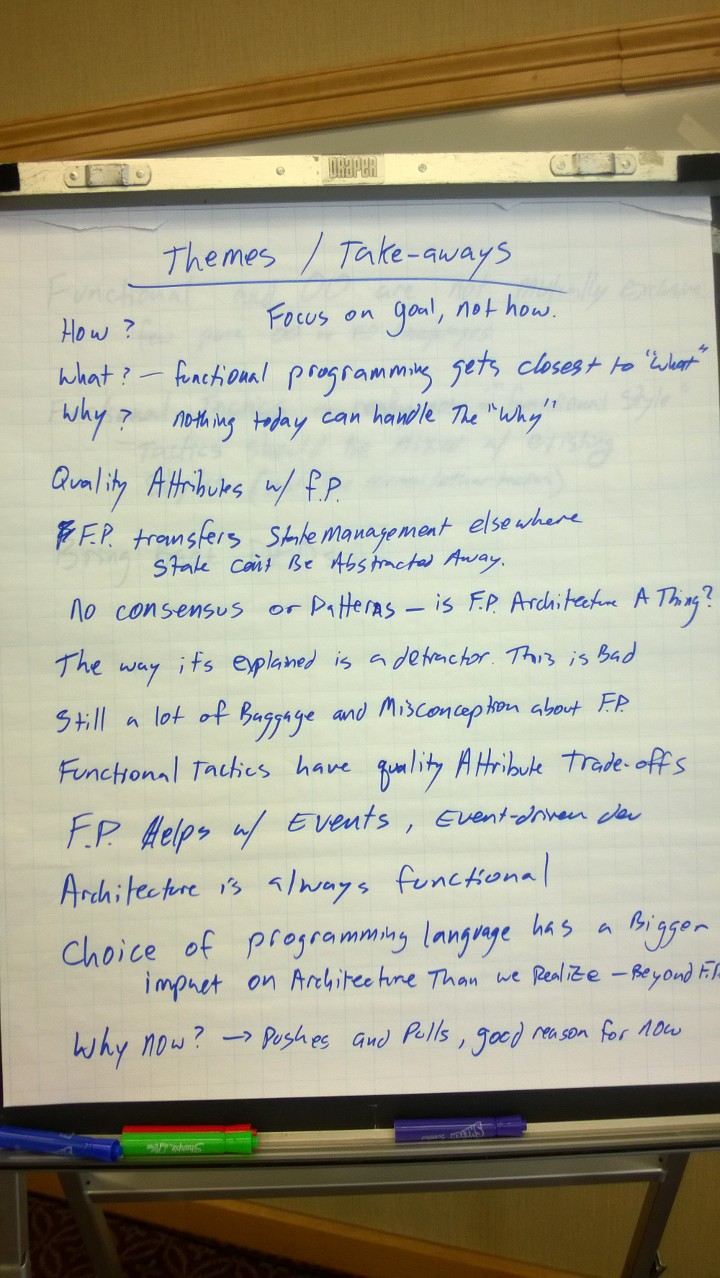 DRAPER
Themes / Take-aways
Focus on goal, not how.
How?
What? — functional programming gets closest to "what"
Why? nothing today can handle The "Why"
Quality Attributes w/ f.P.
F.P. transfers State Management elsewhere
State can't Be Abstracted Away.
No consensus or Patterns — is F.P. Architecture A Thing?
The way its explained is a detractor. This is Bad
Still a lot of Baggage and Misconception about F.P.
Functional Tactics have quality Attribute Trade-offs
F.P. Helps w/ Events, Event-driven dev
Architecture is always functional
Choice of programming language has a Bigger
impact on Architecture Than we Realize — Beyond F.P.
Why now? → Pushes and Pulls, good reason for now
Sharpie